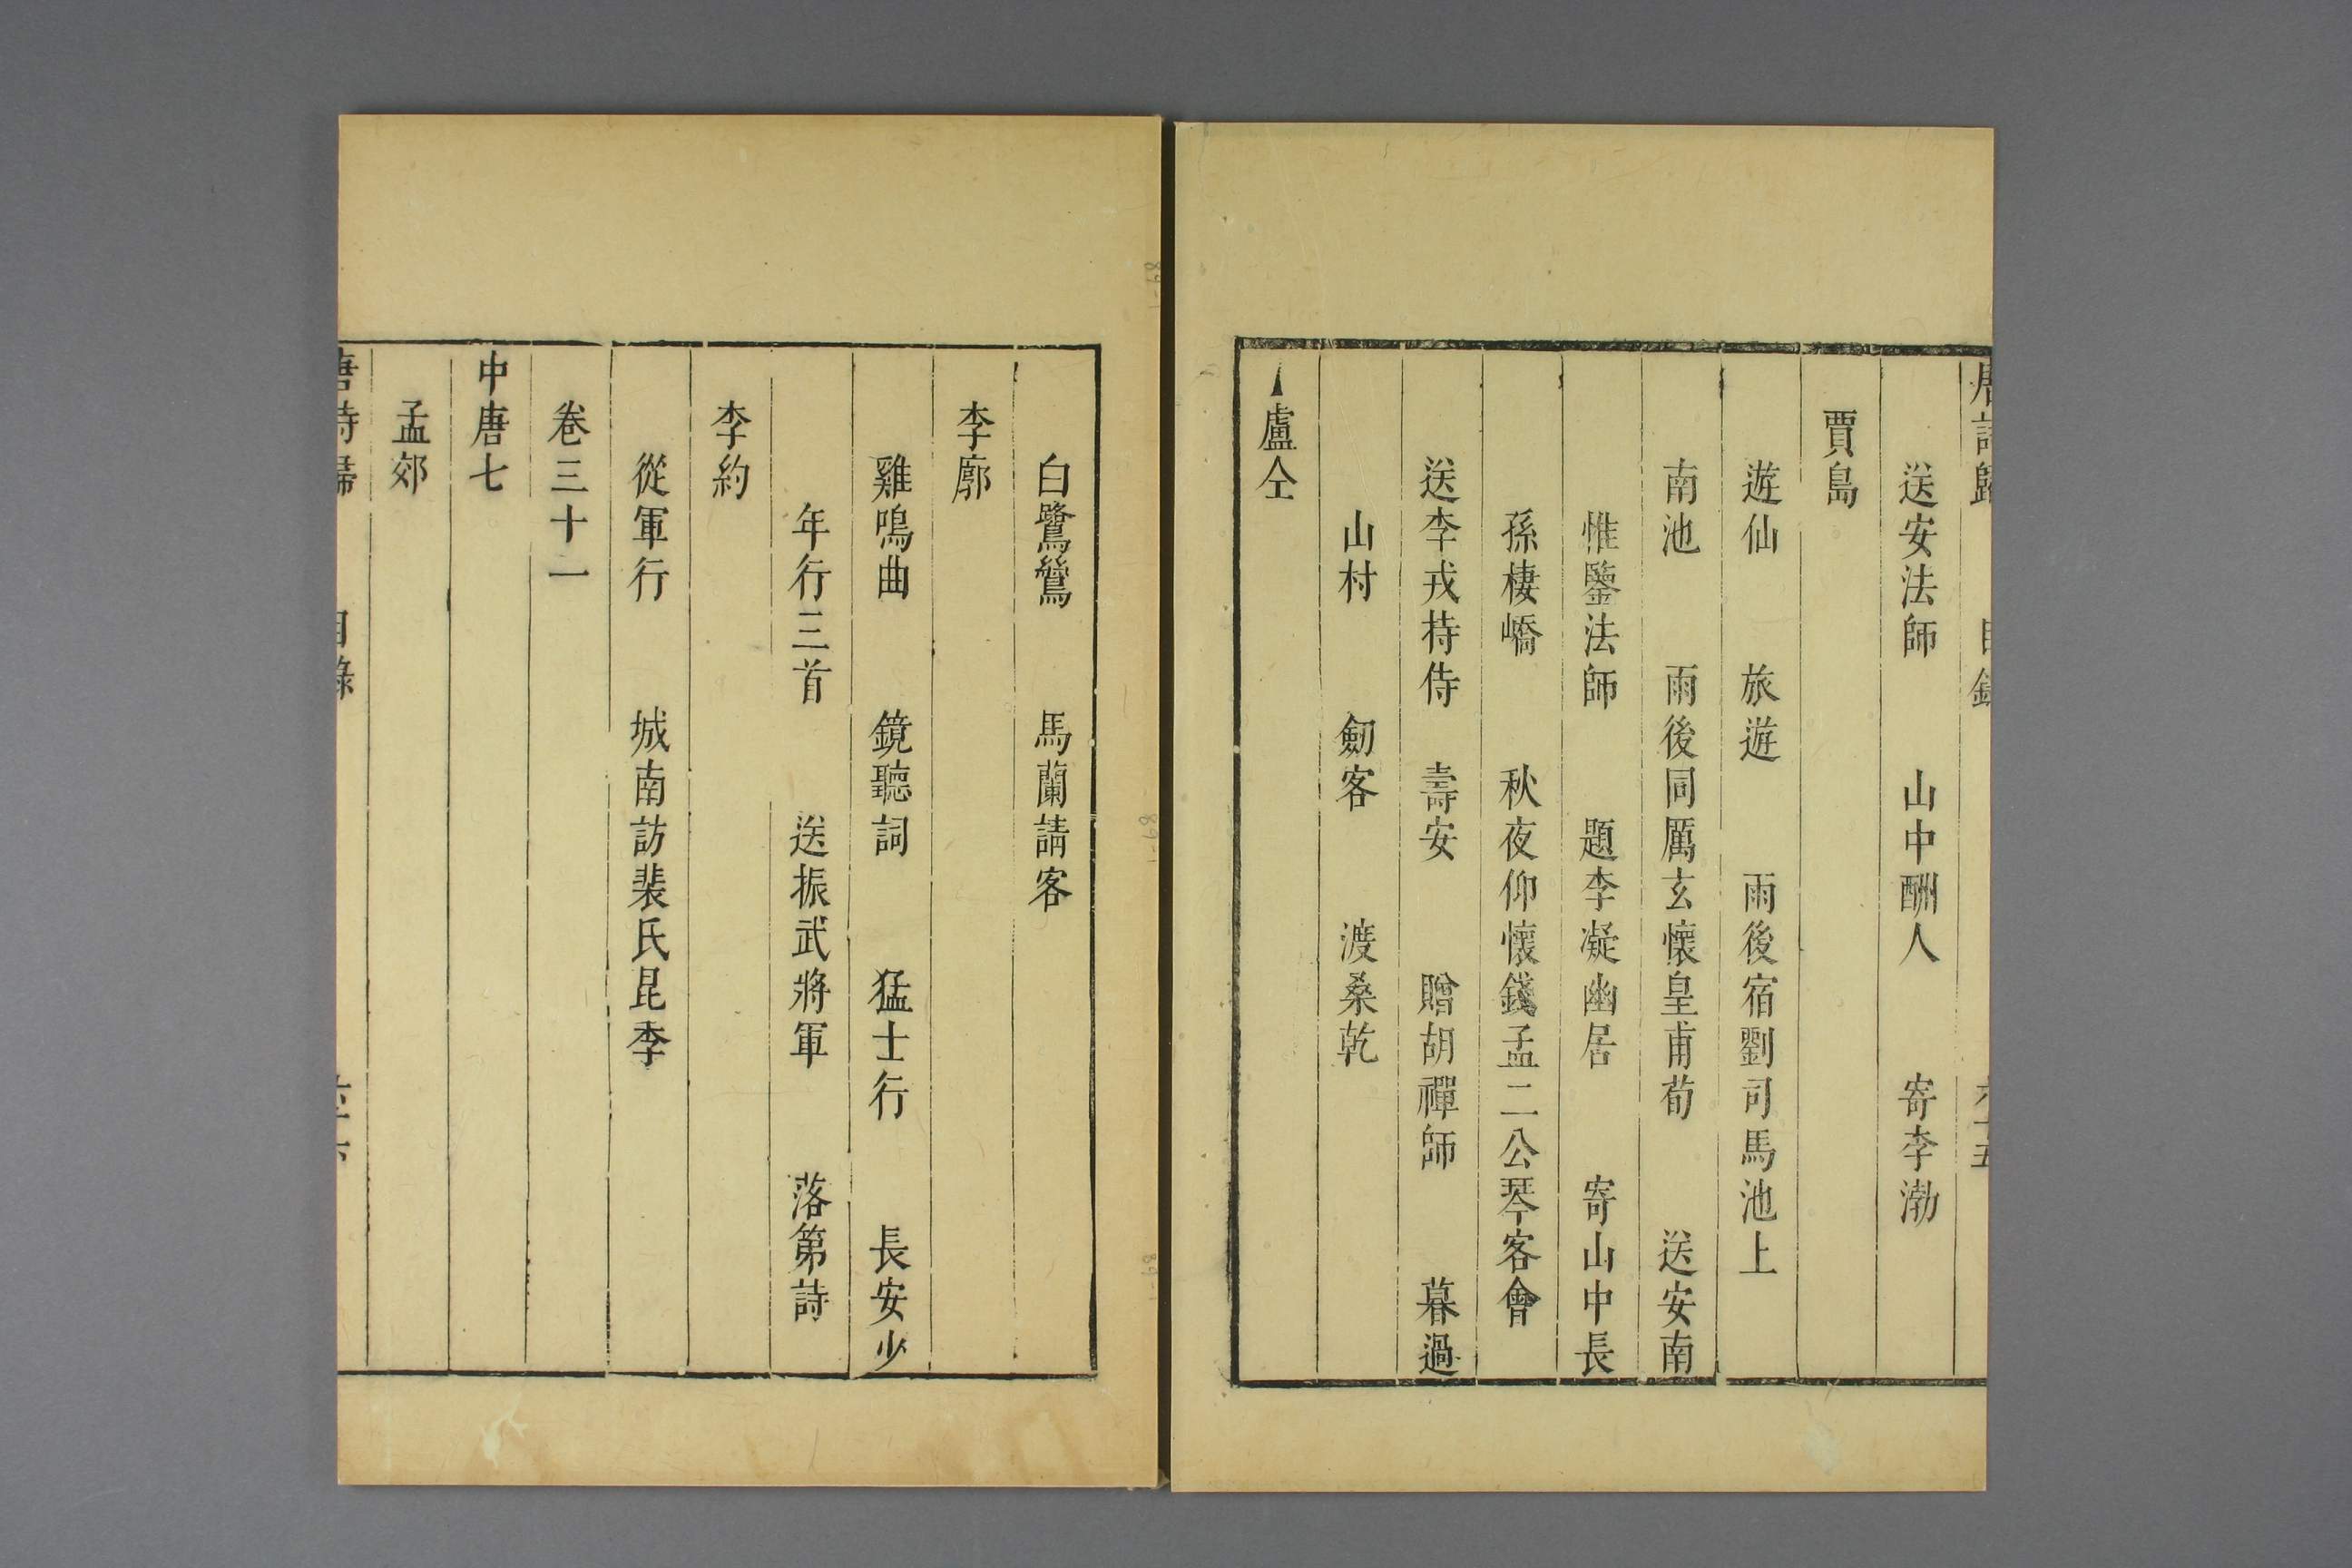 唐詩歸 目錄
送安法師 山中酬人 寄李渤
賈島
遊仙 旅遊 雨後宿劉司馬池上
南池 雨後同厲玄懷皇甫荀 送安南
惟鑒法師 題李凝幽居 寄山中長
孫棲嶠 秋夜仰懷錢孟二公琴客會
送李戎持侍 壽安 贈胡禪師 暮過
山村 劒客 渡桑乾
盧仝
白鷺鷥 馬蘭請客
李廓
雞鳴曲 鏡聽詞 猛士行 長安少
年行三首 送振武將軍 落第詩
李約
從軍行 城南訪裴氏昆季
卷三十一
中唐七
孟郊
唐詩歸 目錄